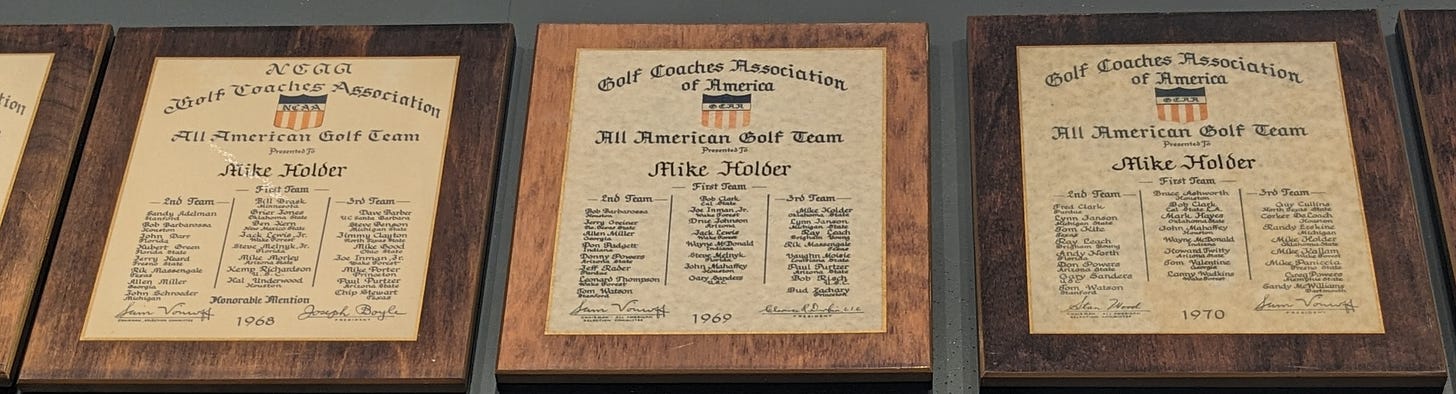 tion
NCAA
Golf Coaches Association
NCAA
All American Golf Team
Presented To
Mike Holder
First Team
Bill Brask
Minnesota
Grier Jones
Oklahoma State
Ben Kern
New Mexico State
Jack Lewis, Jr.
Wake Forest
Steve Melnyk, Jr.
Florida
Mike Morley
Arizona State
Kemp Richardson
U.S.C.
Hal Underwood
Houston
2nd Team
Sandy Adelman
Stanford
Bob Barbarossa
Houston
John Darr
Florida
Hubert Green
Florida State
Jerry Heard
Fresno State
Rik Massengale
Texas
Allen Miller
Georgia
John Schroeder
Michigan
3rd Team
Dave Barber
UC Santa Barbara
Steve Benson
Michigan State
Jimmy Clayton
North Texas State
Mike Good
Ohio State
Joe Inman, Jr.
Wake Forest
Mike Porter
Princeton
Paul Purtzer
Arizona State
Chip Stewart
Texas
Honorable Mention
CHAIRMAN, SELECTION COMMITTEE
1968
Joseph Boyle
PRESIDENT
Golf Coaches Association
of America
GCAA
All American Golf Team
Presented To
Mike Holder
First Team
Bob Clark
Cal State
Joe Inman Jr.
Wake Forest
Drue Johnson
Arizona
Jack Lewis
Wake Forest
Wayne McDonald
Indiana
Steve Melnyk
Florida
John Mahaffey
Houston
Gary Sanders
U.S.C.
2nd Team
Bob Barbarossa
Houston
Jerry Greiner
Allen Miller
Georgia
Don Padgett
Indiana
Donny Powers
Arizona State
Jeff Raber
Purdue
Leonard Thompson
Wake Forest
Tom Watson
Stanford
3rd Team
Mike Holder
Oklahoma State
Lynn Janson
Michigan State
Ray Leach
Brigham Young
Rik Massengale
Texas
Vaughn Moisie
Paul Purtzer
Arizona State
Bob Risch
U.S.C.
Bud Zachary
Princeton
CHAIRMAN ALL AMERICAN
SELECTION COMMITTEE
1969
PRESIDENT
Golf Coaches Association
of America
GCAA
All American Golf Team
Presented To
Mike Holder
First Team
Bruce Ashworth
Houston
Bob Clark
Cal State L.A.
Mark Hayes
Oklahoma State
John Mahaffey
Houston
Wayne McDonald
Indiana
Howard Twitty
Arizona State
Tom Valentine
Georgia
Lanny Wadkins
Wake Forest
2nd Team
Fred Clark
Purdue
Lynn Janson
Michigan State
Tom Kite
Texas
Ray Leach
Brigham Young
Andy North
Florida
Don Powers
Arizona State
Gary Sanders
U.S.C.
Tom Watson
Stanford
3rd Team
Guy Cullins
North Texas State
Corker DeLoach
Houston
Randy Erskine
Michigan
Mike Holder
Oklahoma State
Mike Kallam
Wake Forest
Mike Paniccia
Fresno State
Greg Powers
Arizona State
Sandy McWilliams
Dartmouth
CHAIRMAN ALL AMERICAN
SELECTION COMMITTEE
1970
PRESIDENT